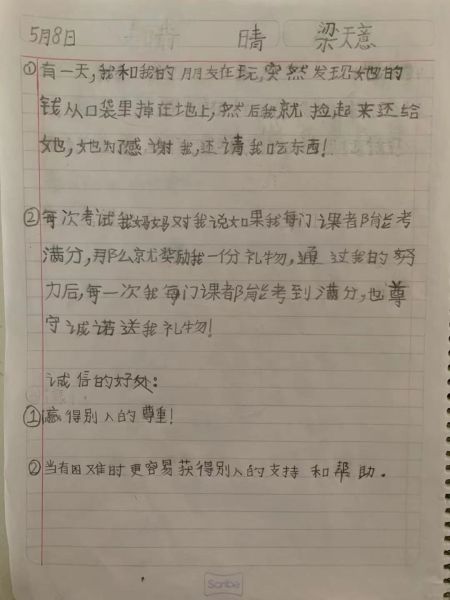 5月8日 晴 梁天意
①有一天,我和我的朋友在玩,突然发现她的
钱从口袋里掉在地上,然后我就捡起来还给
她,她为了感谢我,还请我吃东西!
②每次考试我妈妈对我说如果我每门课都能考
满分,那么就奖励我一份礼物,通过我的努
力后,每一次我每门课都能考到满分,也尊
守诚诺送我礼物!
诚信的好处:
①赢得别人的尊重!
②当有困难时更容易获得别人的支持和帮助.
Scribe